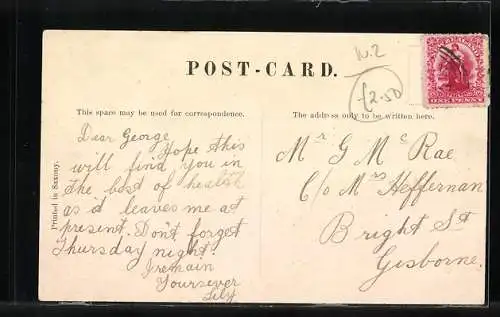 N.Z
POST-CARD.
£2-50
ONE PENNY
This space may be used for correspondence.
The address only to be written here.
Dear George,
Hope this
will find you in
the best of health
as it leaves me at
present. Don't forget
Thursday night.
I remain
Yours ever
Lily
Mr G McRae
C/o Mrs Heffernan
Bright St
Gisborne.
Printed in Saxony.